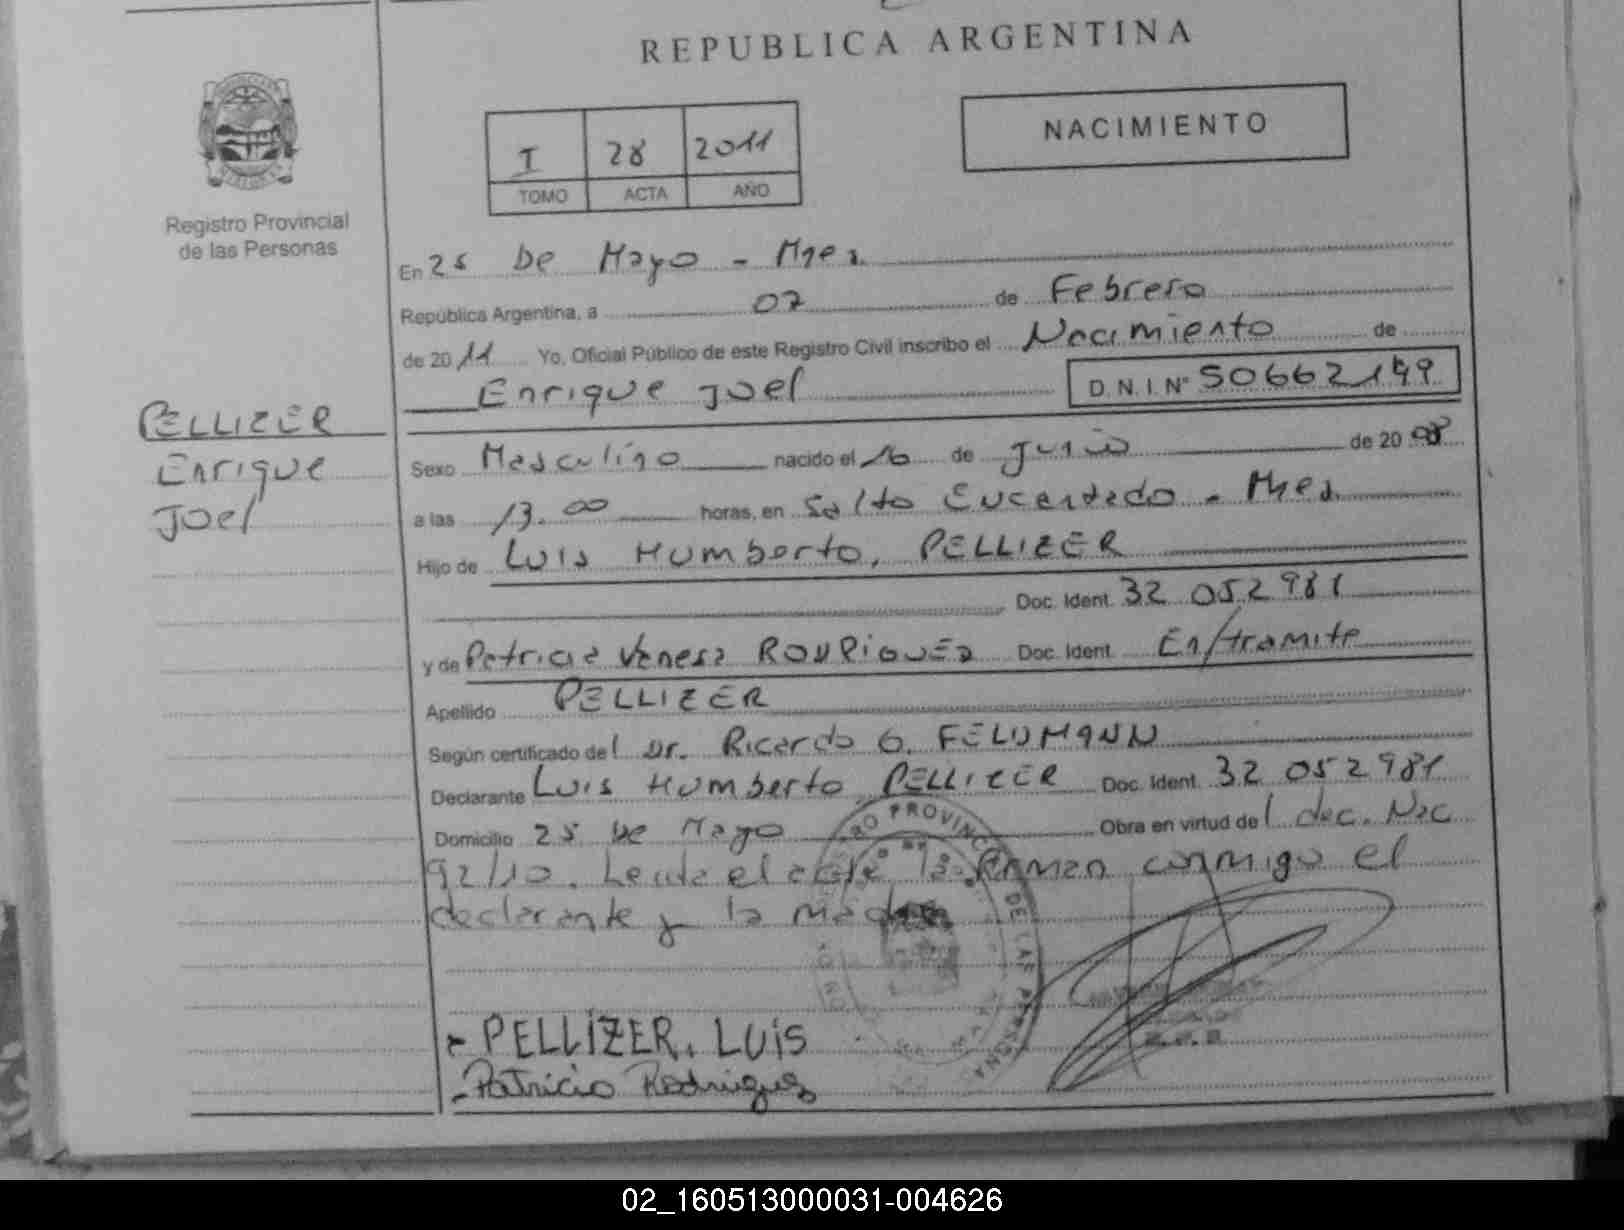 REPUBLICA ARGENTINA
I 28 2011
TOMO ACTA AÑO
NACIMIENTO
Registro Provincial
de las Personas
PELLIZER
Enrique
Joel
En 25 De Mayo - Mnes.
República Argentina, a 07 de Febrero
de 2011 Yo, Oficial Público de este Registro Civil inscribo el Nacimiento de
Enrique Joel D.N.I. Nº 50662149
Sexo Masculino nacido el 16 de Junio de 2008
a las 13.00 horas, en Salto Encantado - Mnes.
Hijo de Luis Humberto, PELLIZER
Doc. Ident. 32 052 981
y de Patricia Vanesa RODRIGUEZ Doc. Ident. En/tramite
Apellido PELLIZER
Según certificado del Dr. Ricardo G. FELDMANN
Declarante Luis Humberto PELLIZER Doc. Ident. 32 052 981
Domicilio 25 De Mayo Obra en virtud del dec. Nac
92/10. Leida el acta la firman conmigo el
declarante y la madre
- PELLIZER, LUIS
- Patricia Rodriguez
02_160513000031-004626